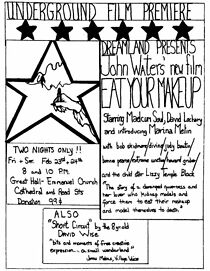 UNDERGROUND FILM PREMIERE
DREAMLAND PRESENTS
John Waters' new film
EAT YOUR MAKEUP
Starring Maelcum Soul, David Lochary
and introducing Marina Melin
with bob skidmore/divine/judy boutin/
bonnie pearce/extreme unction/howard gruber/
and the child star Lizzy Temple Black
The story of a deranged governess and
her lover who kidnap models and
force them to eat their makeup
and model themselves to death
TWO NIGHTS ONLY!!
Fri + Sat Feb 23rd + 24th
8 and 10 P.M.
Great Hall - Emmanuel Church
Cathedral and Read Sts
Donation 99¢
ALSO
"Short Circuit" by the 8 yr old
DAVID WISE
"bits and moments of fine creative
expression... a small wonderland"
Jonas Mekas, Village Voice